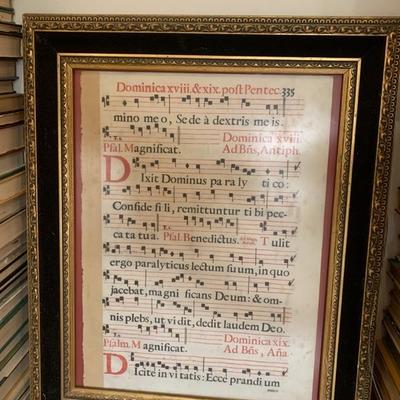 Dominica xviii. & xix. post Pentec. 335
mino meo, Sede à dextris meis.
Psal. Magnificat. Dominica xviii.
Ad Bñs, Antiph.
DIxit Dominus paraly tico:
Confide fili, remittuntur tibi pec-
cata tua. Psal. Benedictus. Tulit
ergo paralyticus lectum suum, in quo
jacebat, magni ficans Deum: & om-
nis plebs, ut vidit, dedit laudem Deo.
Psalm. Magnificat. Dominica xix.
Ad Bñs, Aña
DIcite invitatis: Ecce prandium